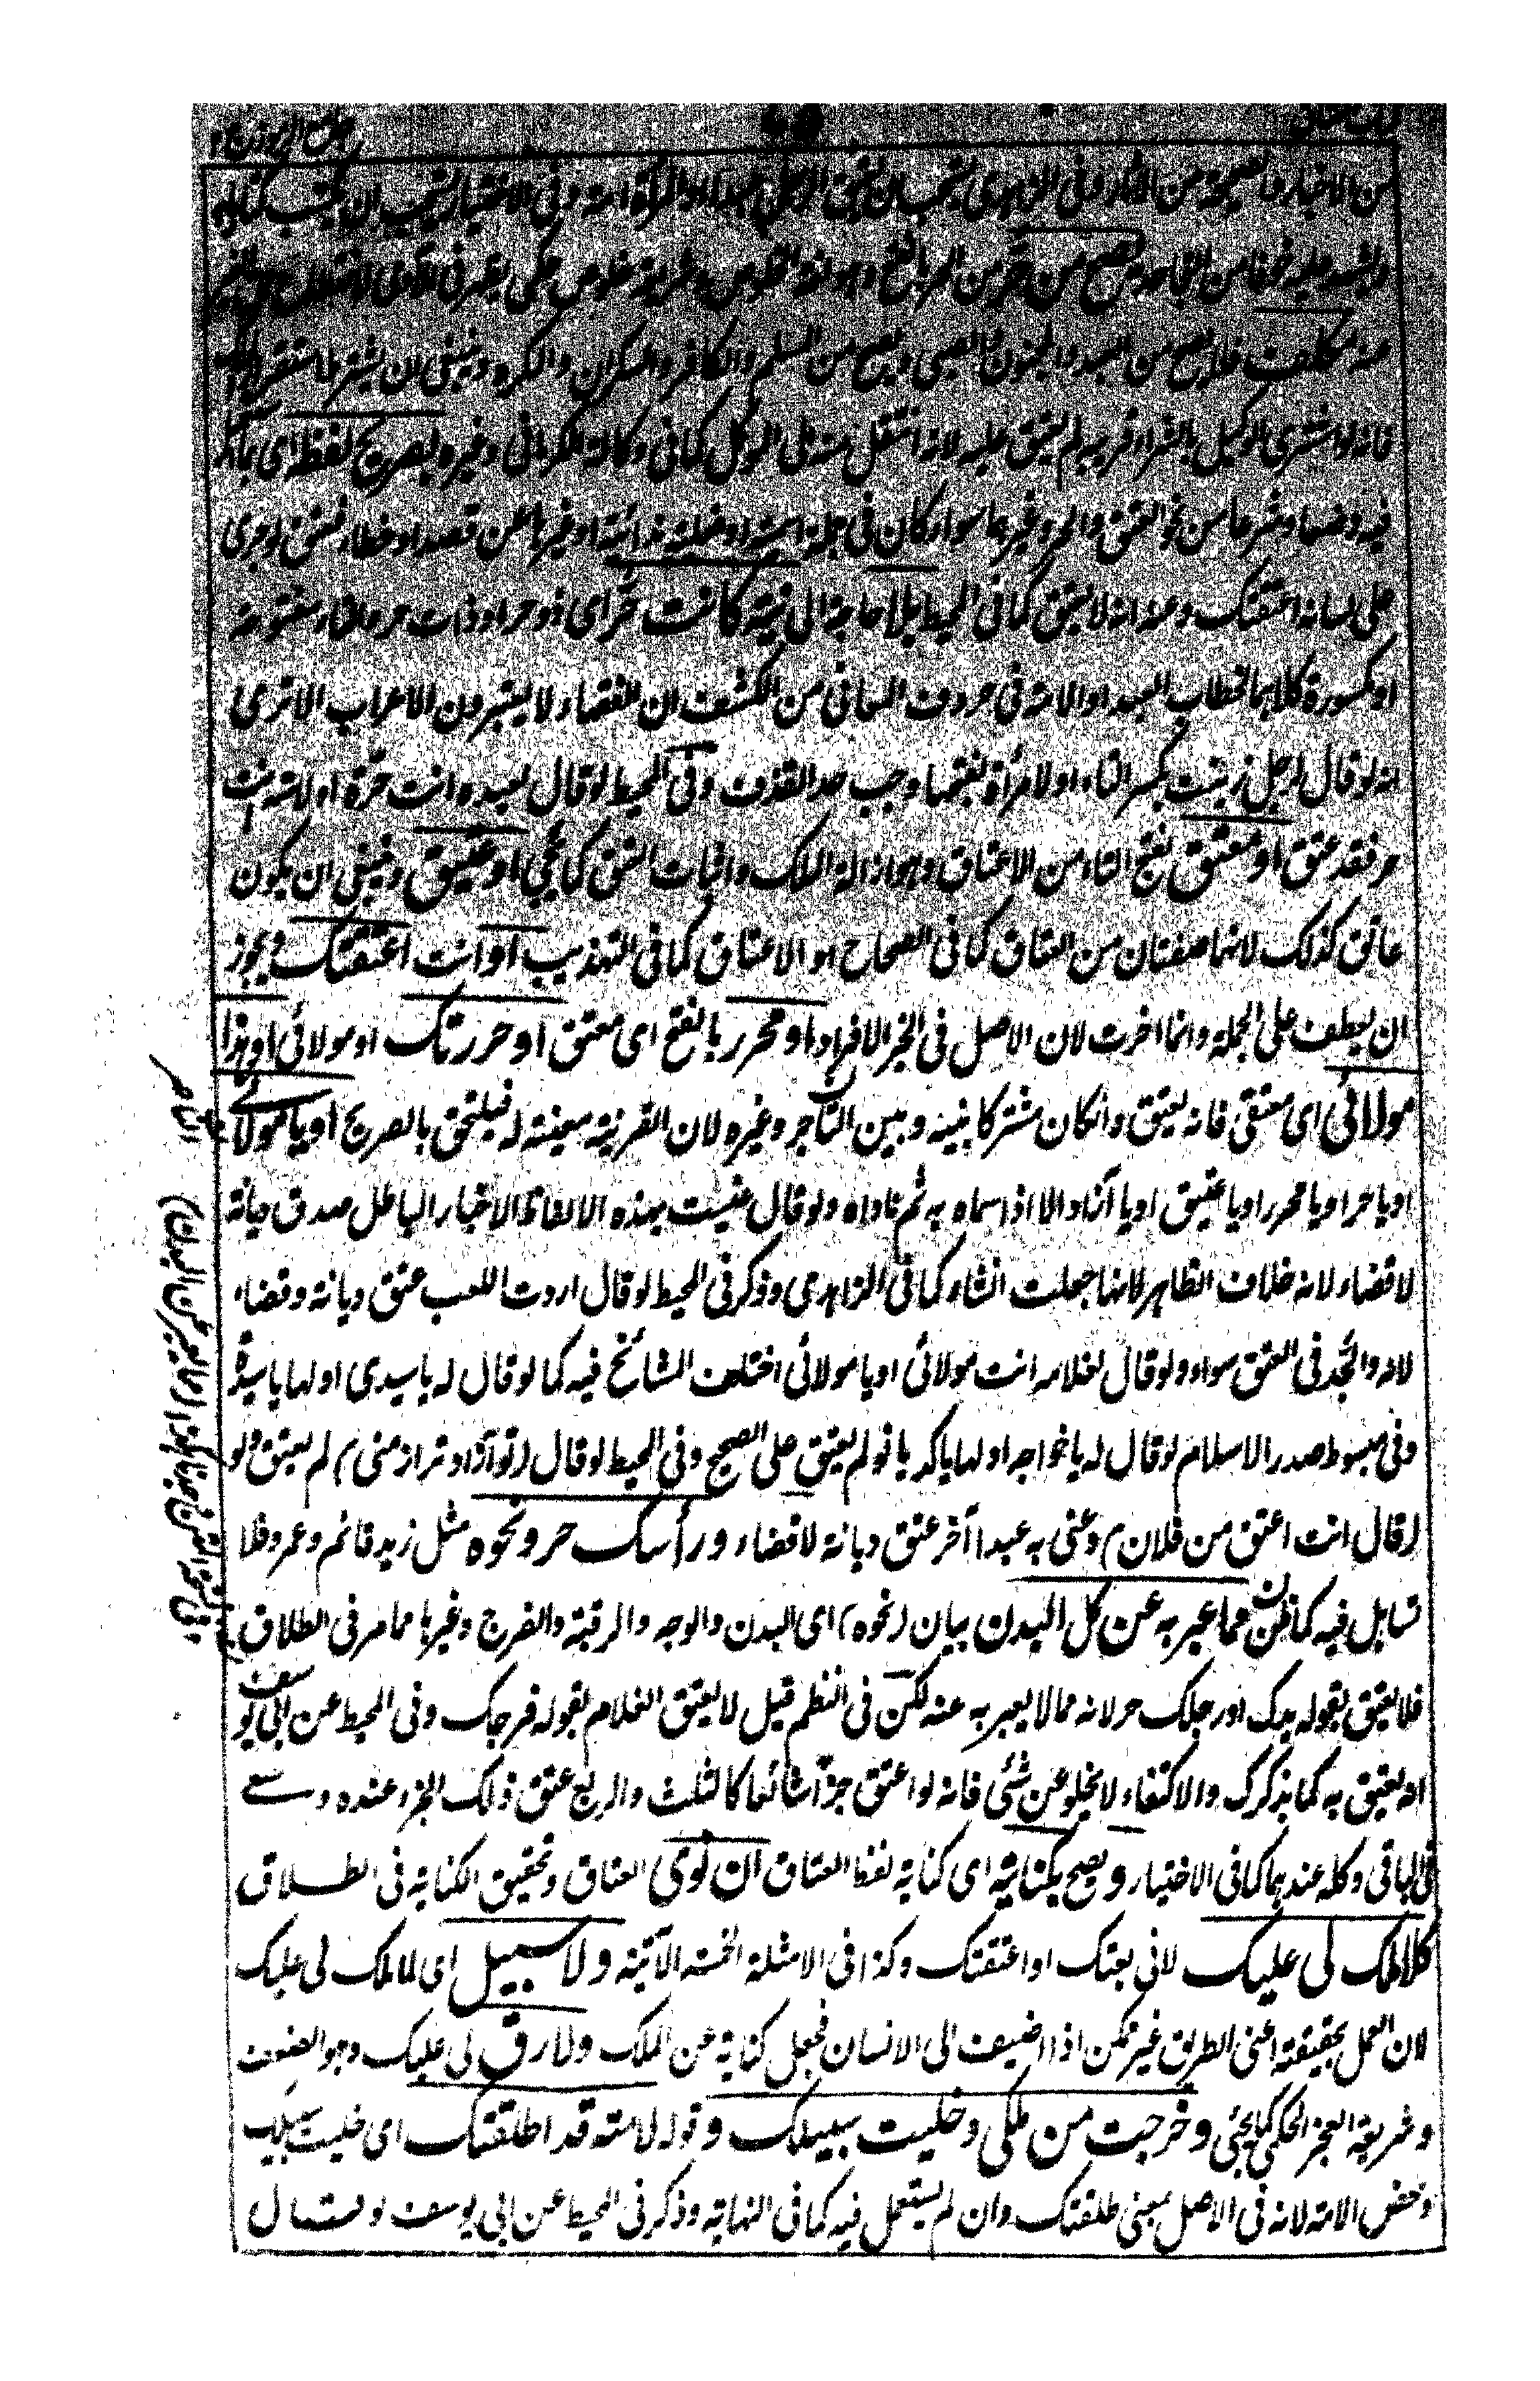 جامع الرموز ج ٢
من الاخبار وما صحت من الآثار وفى الزاهدى يستحب ان يعتق الرجل عبدا والمرأة امة وفى الاختيار يستحب ان يكتب كتابا
ويشهد عليه خوفا من التجاحد يصح من حر من الحر بالفتح وهو لغة الخلوص وشريعة خلوص حكمى يظهر فى الآدمى
منه مكلف فلا يصح من العبد والمجنون والصبى ويصح من المسلم والكافر والسكران والمكره وينبغى ان يشترط
فانه لو اشترى الوكيل بالشراء قريبه لم يعتق عليه لانه انتقل منه الى الموكل كما فى وكالة الكرمانى وغيره بصريح لفظه اى بما
فيه وضعا وشرعا من نحو العتق والحر وغيرهما سواء كان فى جملة اسمية او فعلية ندائية او غيرها عن قصد او خطاء فعتق لو جرى
على لسانه اعتقتك وعنه انه لا يعتق كما فى المحيط بلا حاجة الى نية كانت حر اى ذو حر او ذات حر والتاء مفتوحة
او مكسورة كلاهما لخطاب العبد او الامة فى حروف المعانى من الكشف ان الفقهاء لا يعتبرون الاعراب الا ترى
انه لو قال لرجل زنيت بكسر التاء او لامرأة بفتحها وجب حد القذف وفى المحيط لو قال لعبده انت حرة او لامته انت
حر فقد عتق او معتق بفتح التاء من الاعتاق وهو ازالة الملك واثبات العتق كما يجئ او عتيق وينبغى ان يكون
عاتق كذلك لانهما صفتان من العتاق كما فى الصحاح او الاعتاق كما فى التهذيب او انت اعتقتك ويجوز
ان يعطف على الجملة وانما اخرت لان الاصل فى الخبر الافراد او محرر بالفتح اى معتق او حررتك او مولائى او هذا
مولائى اى معتقى فانه يعتق وانكان مشتركا بينه وبين التأجر وغيره لان القرينة معينة له فيلتحق بالصريح او يا مولائے
او يا حر او يا محرر او يا عتيق او يا آزاد الا اذا سماه به ثم ناداه ولو قال عنيت بهذه الالفاظ الاخبار الباطل صدق ديانة
لا قضاء لانه خلاف الظاهر لانها جعلت انشاء كما فى الزاهدى وذكر فى المحيط لو قال اردت اللعب عتق ديانة وقضاء
لانه والجد فى العتق سواء ولو قال لغلامه انت مولائى او يا مولائى اختلف المشائخ فيه كما لو قال له يا سيدى او لها يا سيدة
وفى مبسوط صدر الاسلام لو قال له يا خواجه او لها يا كد بانو لم يعتق على الصحيح وفى المحيط لو قال (تو آزاد تر از منى) لم يعتق ولو
(قال انت اعتق من فلان) وعنى به عبدا آخر عتق ديانة لا قضاء ورأسك حر ونحوه مثل زيد قائم وعمرو فلا
تساهل فيه كما ظن مما عبر به عن كل البدن بيان (نحوه) اى البدن والوجه والرقبة والفرج وغيرها مما مر فى الطلاق
فلا يعتق بقوله يدك او رجلك حر لانه مما لا يعبر به عنه لكن فى النظم قيل لا يعتق الغلام بقوله فرجك وفى المحيط عن ابى يوسف
انه يعتق به كما بذكرك والاكتفاء لا يخلو عن شئ فانه لو اعتق جزأ شائعا كالثلث والربع عتق ذلك الجزء عنده وسعے
فى الباقى وكله عندهما كما فى الاختيار ويصح بكنايته اى كناية لفظ العتاق ان نوى العتاق وتحقيق الكناية فى الطلاق
كلا ملك لى عليك لانى بعتك او اعتقتك وكذا فى الامثلة الخمسة الآتية ولا سبيل اى لا ملك لى عليك
لان العمل بحقيقته اعنى الطريق غير ممكن اذا اضيف الى الانسان فجعل كناية عن الملك ولا رق لى عليك وهو الضعف
وشريعة العجز الحكمى كما يجئ وخرجت من ملكى وخليت سبيلك وقوله لامته قد اطلقتك اى خليت سبيلك
وخص الامة لانه فى الاصل بمعنى طلقتك وان لم يستعمل فيه كما فى النهاية وذكر فى المحيط عن ابى يوسف لو قال